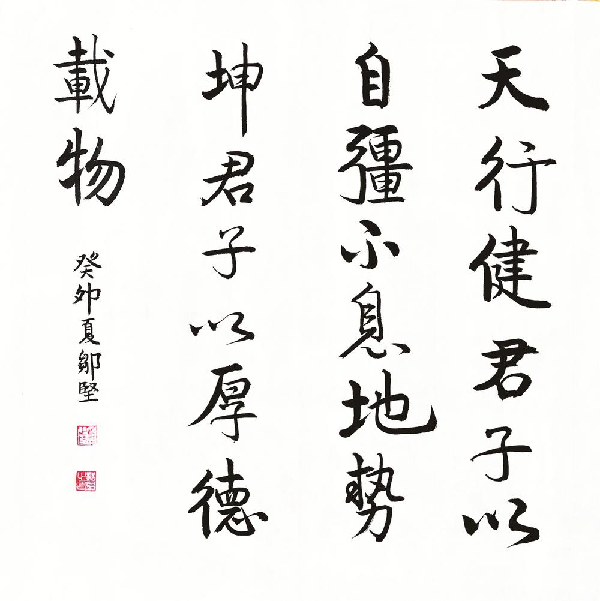 天行健君子以
自彊不息地勢
坤君子以厚德
載物
癸卯夏鄒堅